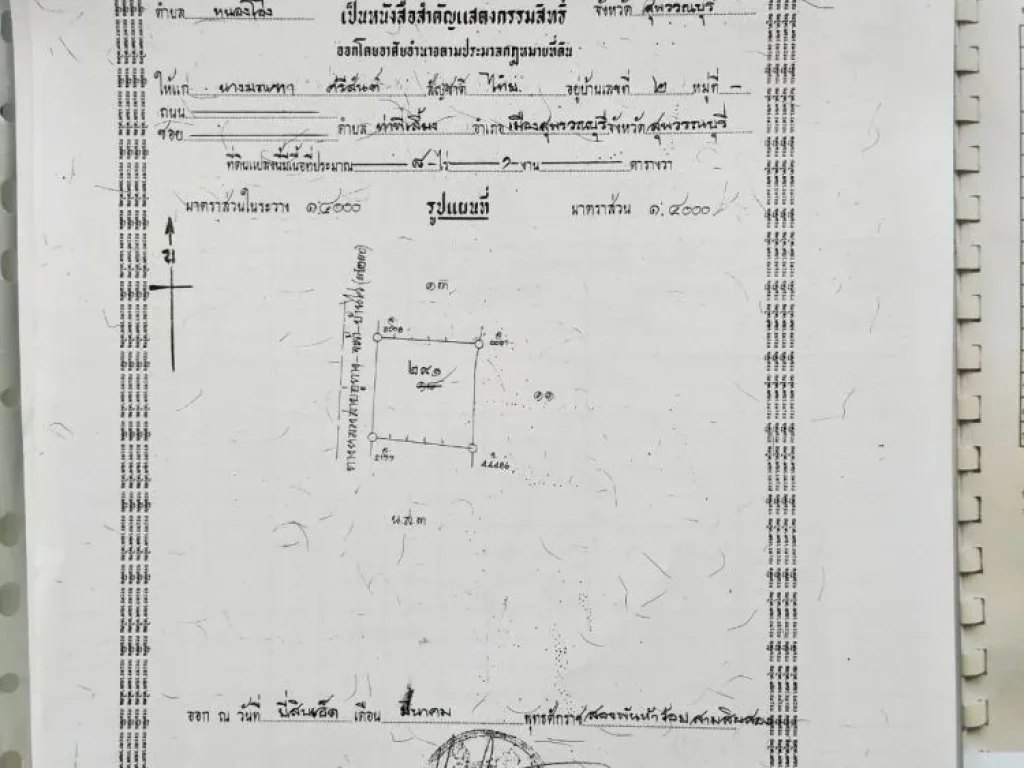 ตำบล หนองโอ่ง เป็นหนังสือสำคัญแสดงกรรมสิทธิ์ จังหวัด สุพรรณบุรี
ออกโดยอาศัยอำนาจตามประมวลกฎหมายที่ดิน
ให้แก่ นางมณฑา ศรีสันต์ สัญชาติ ไทย อยู่บ้านเลขที่ ๒ หมู่ที่ -
ถนน
ซอย ตำบล ท่าพี่เลี้ยง อำเภอ เมืองสุพรรณบุรี จังหวัด สุพรรณบุรี
ที่ดินแปลงนี้มีเนื้อที่ประมาณ ๘ ไร่ งาน ตารางวา
มาตราส่วนในระวาง ๑:๔๐๐๐ รูปแผนที่ มาตราส่วน ๑:๔๐๐๐
น
๒๙๑
๑๑
น.ส.๓
ออก ณ วันที่ ยี่สิบเอ็ด เดือน มีนาคม พุทธศักราช สองพันห้าร้อยสามสิบสอง